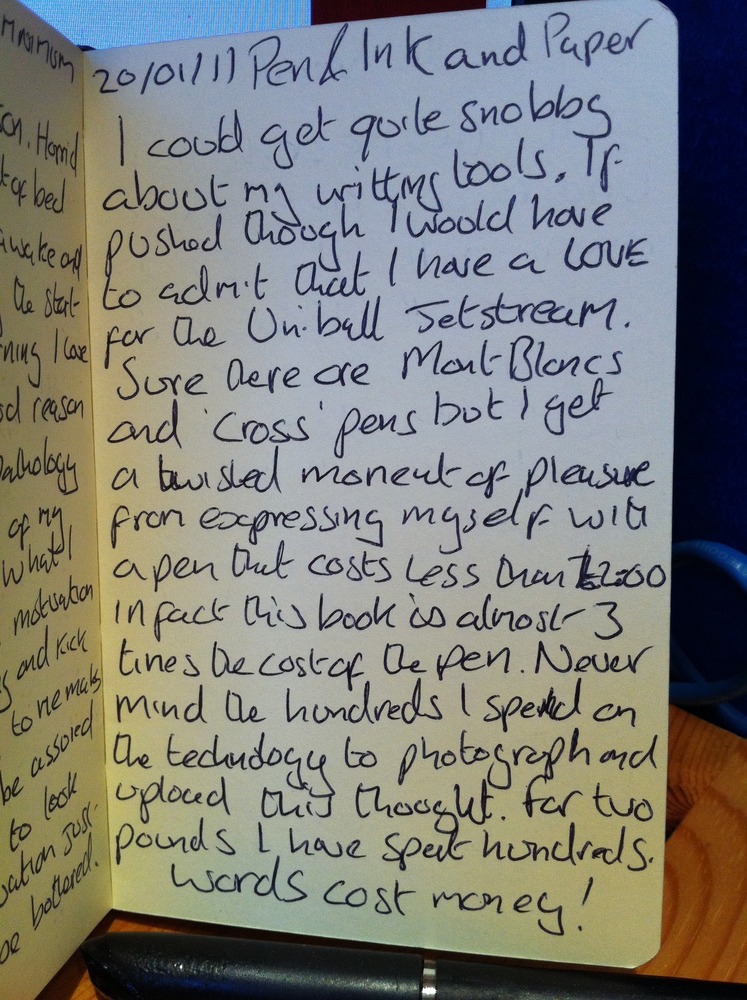 mnimum
on. Horrid
t of bed
awake and
the start
rning I love
od reason
Pathology
of my
What I
motivation
and kick
to me make
be assored
to look
vation just
be bothered.
20/01/11 Pen & Ink and Paper
I could get quite snobby
about my writting tools. If
pushed though I would have
to admit that I have a LOVE
for the Uniball Jetstream.
Sure there are Mont Blancs
and 'Cross' pens but I get
a twisted moment of pleasure
from expressing myself with
a pen that costs less than £2:00
In fact this book is almost 3
times the cost of the pen. Never
mind the hundreds I spend on
the technology to photograph and
upload this thought. For two
pounds I have spent hundreds.
Words cost money!